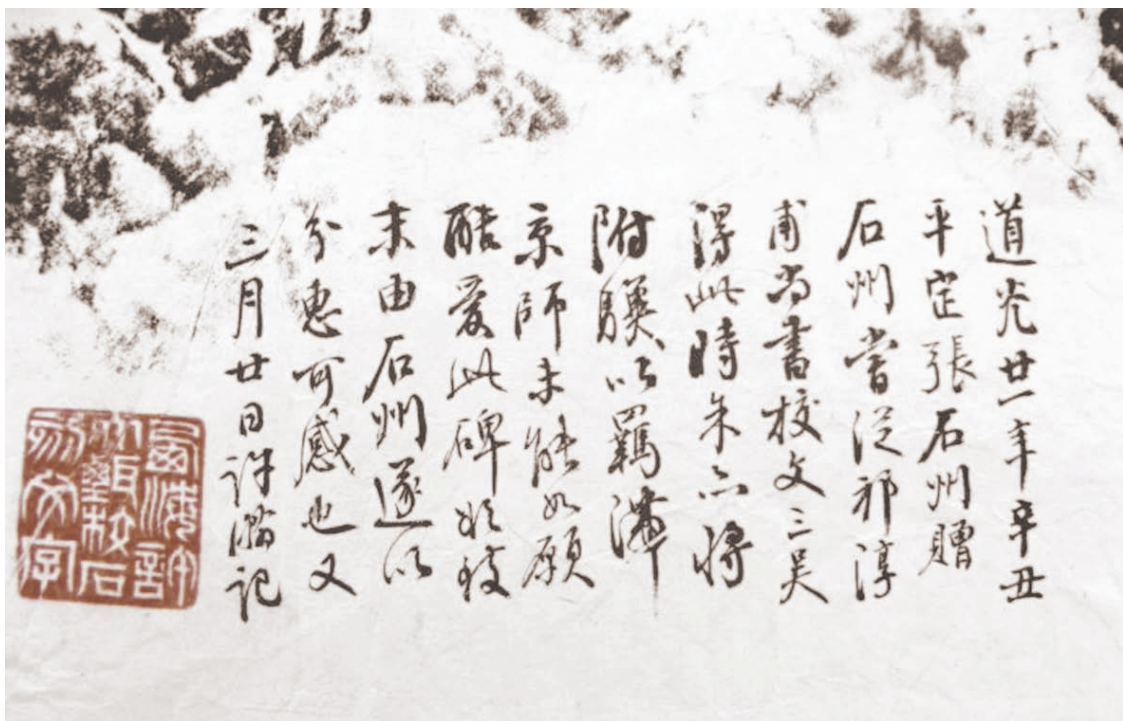 道光廿一年辛丑
平定張石州贈
石州嘗從祁淳
甫尚書校文三吳
得此時余亦將
附驥以羈滯
京師未能如願
酷愛此碑欲致
末由石州遂以
分惠可感也又
三月廿日許瀚記